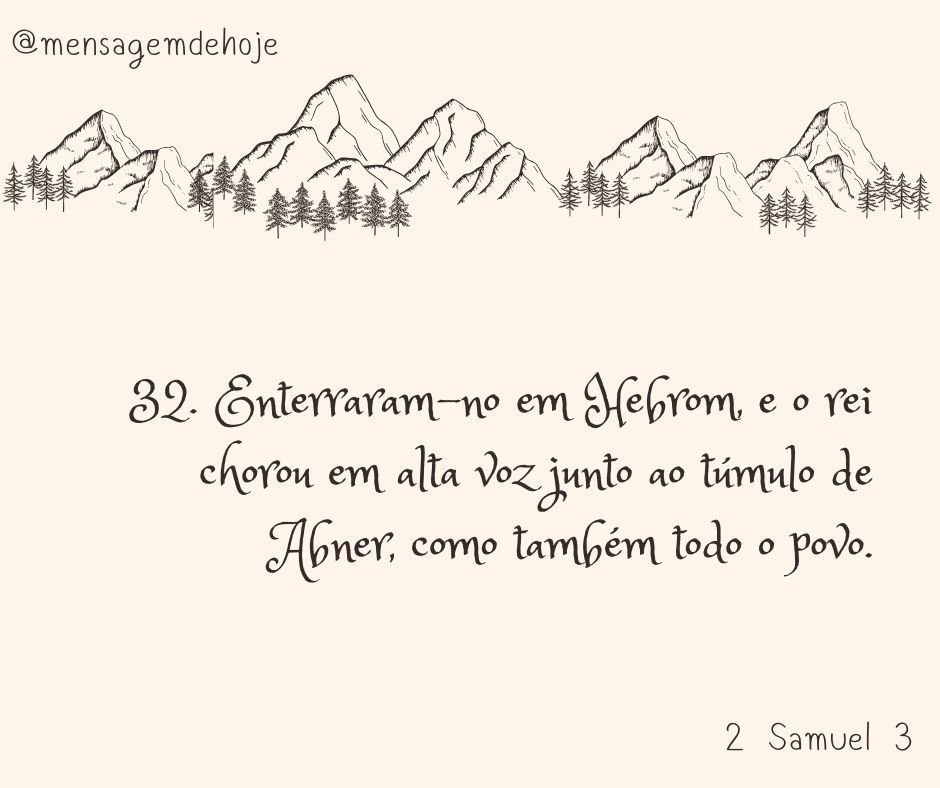 @mensagemdehoje
32. Enterraram-no em Hebrom, e o rei
chorou em alta voz junto ao túmulo de
Abner, como também todo o povo.
2 Samuel 3